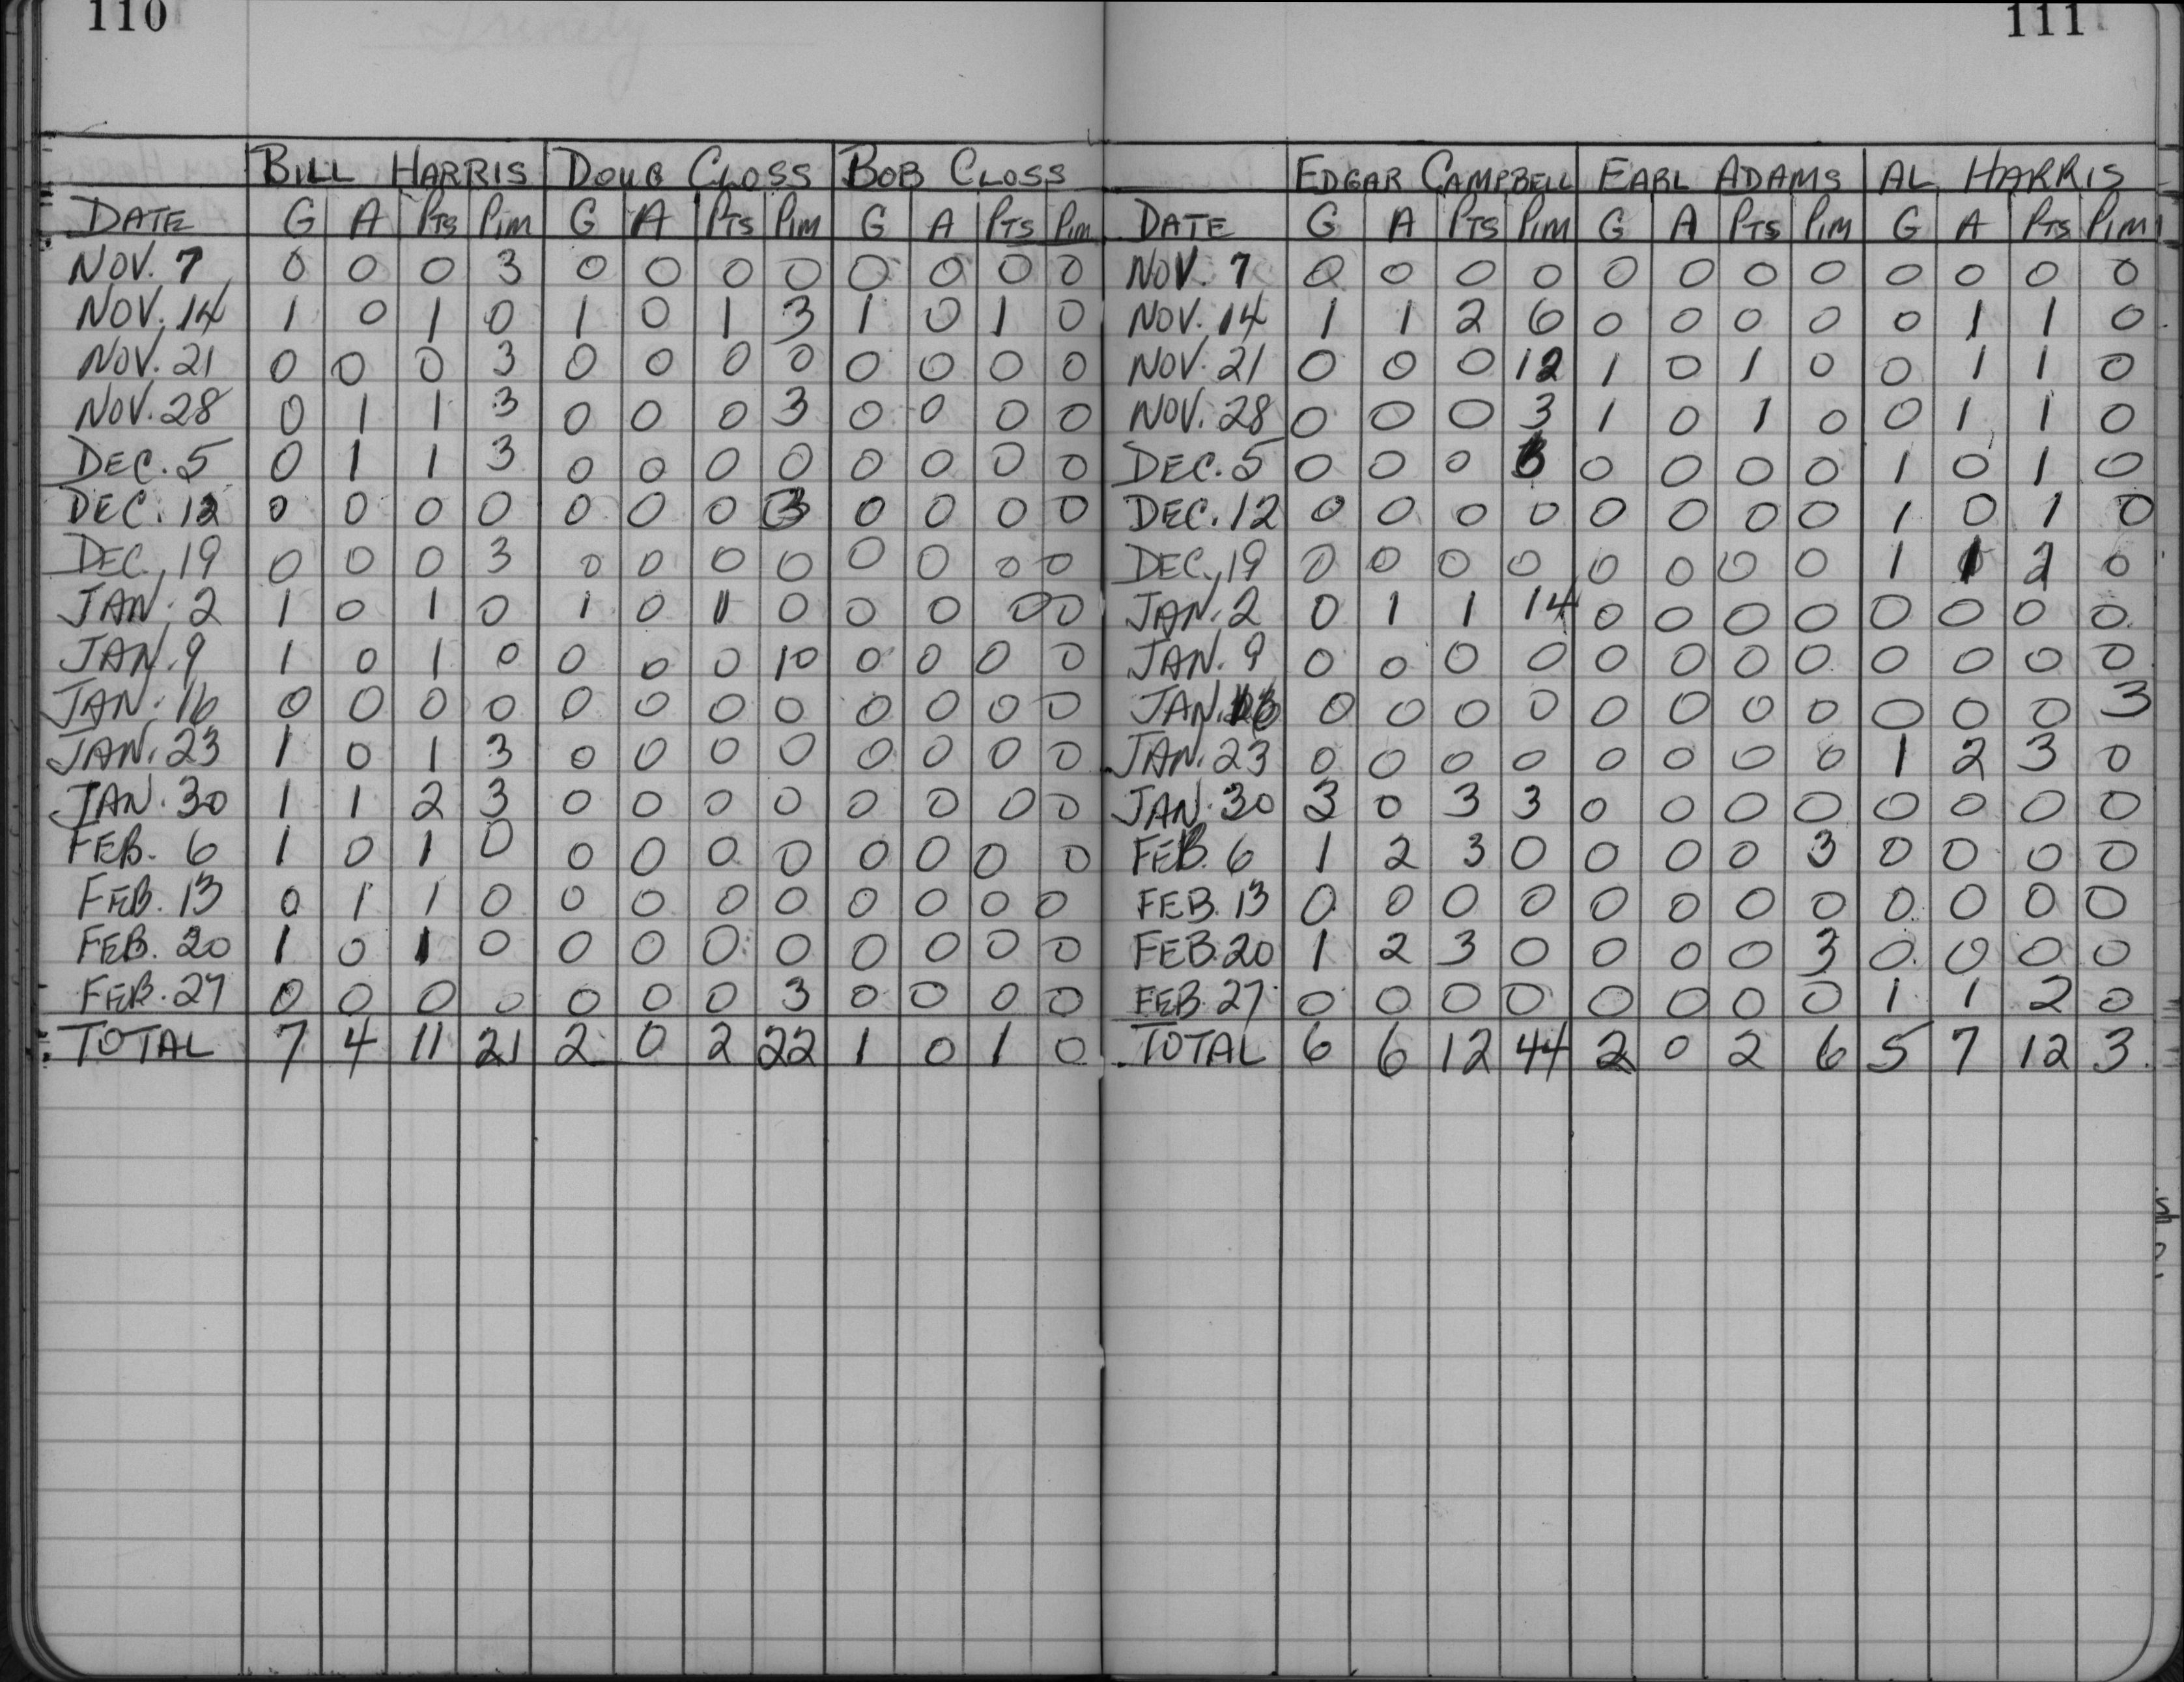 110
BILL HARRIS DOUG CLOSS BOB CLOSS
DATE G A PTS PIM G A PTS PIM G A PTS PIM
NOV. 7 0 0 0 3 0 0 0 0 0 0 0 0
NOV. 14 1 0 1 0 1 0 1 3 1 0 1 0
NOV. 21 0 0 0 3 0 0 0 0 0 0 0 0
NOV. 28 0 1 1 3 0 0 0 3 0 0 0 0
DEC. 5 0 1 1 3 0 0 0 0 0 0 0 0
DEC. 12 0 0 0 0 0 0 0 3 0 0 0 0
DEC. 19 0 0 0 3 0 0 0 0 0 0 0 0
JAN. 2 1 0 1 0 1 0 1 0 0 0 0 0
JAN. 9 1 0 1 0 0 0 0 10 0 0 0 0
JAN. 16 0 0 0 0 0 0 0 0 0 0 0 0
JAN. 23 1 0 1 3 0 0 0 0 0 0 0 0
JAN. 30 1 1 2 3 0 0 0 0 0 0 0 0
FEB. 6 1 0 1 0 0 0 0 0 0 0 0 0
FEB. 13 0 1 1 0 0 0 0 0 0 0 0 0
FEB. 20 1 0 1 0 0 0 0 0 0 0 0 0
FEB. 27 0 0 0 0 0 0 0 3 0 0 0 0
TOTAL 7 4 11 21 2 0 2 22 1 0 1 0
111
EDGAR CAMPBELL EARL ADAMS AL HARRIS
DATE G A PTS PIM G A PTS PIM G A PTS PIM
NOV. 7 0 0 0 0 0 0 0 0 0 0 0 0
NOV. 14 1 1 2 6 0 0 0 0 0 1 1 0
NOV. 21 0 0 0 12 1 0 1 0 0 1 1 0
NOV. 28 0 0 0 3 1 0 1 0 0 1 1 0
DEC. 5 0 0 0 6 0 0 0 0 1 0 1 0
DEC. 12 0 0 0 0 0 0 0 0 1 0 1 0
DEC. 19 0 0 0 0 0 0 0 0 1 1 2 0
JAN. 2 0 1 1 14 0 0 0 0 0 0 0 0
JAN. 9 0 0 0 0 0 0 0 0 0 0 0 0
JAN. 16 0 0 0 0 0 0 0 0 0 0 0 3
JAN. 23 0 0 0 0 0 0 0 0 1 2 3 0
JAN. 30 3 0 3 3 0 0 0 0 0 0 0 0
FEB. 6 1 2 3 0 0 0 0 3 0 0 0 0
FEB. 13 0 0 0 0 0 0 0 0 0 0 0 0
FEB. 20 1 2 3 0 0 0 0 3 0 0 0 0
FEB. 27 0 0 0 0 0 0 0 0 1 1 2 0
TOTAL 6 6 12 44 2 0 2 6 5 7 12 3